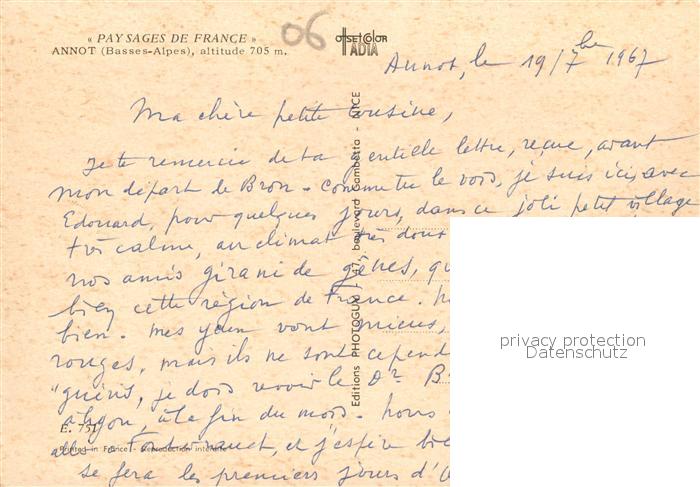 « PAYSAGES DE FRANCE »
ANNOT (Basses-Alpes), altitude 705 m.
06
offsetcolor
ADIA
Annot, le 19/7bre 1967
Ma chère petite Cousine,
Je te remercie de ta gentille lettre, reçue, avant
mon départ de Bron. Comme tu le vois, je suis ici, avec
Edouard, pour quelques jours, dans ce joli petit village
très calme, au climat très doux
nos amis Girani de Gênes, qu
bien cette région de France.
bien. Mes yeux vont mieux,
rouges, mais ils ne sont cepend
"guéris, je dois revoir le Dr B
à Lyon, à la fin du mois. Nous
E. 751
Printed in France - Reproduction interdite
et j'espère
se fera les premiers jours d'
Editions PHOTOGUY, 147, boulevard Gambetta - NICE
privacy protection
Datenschutz